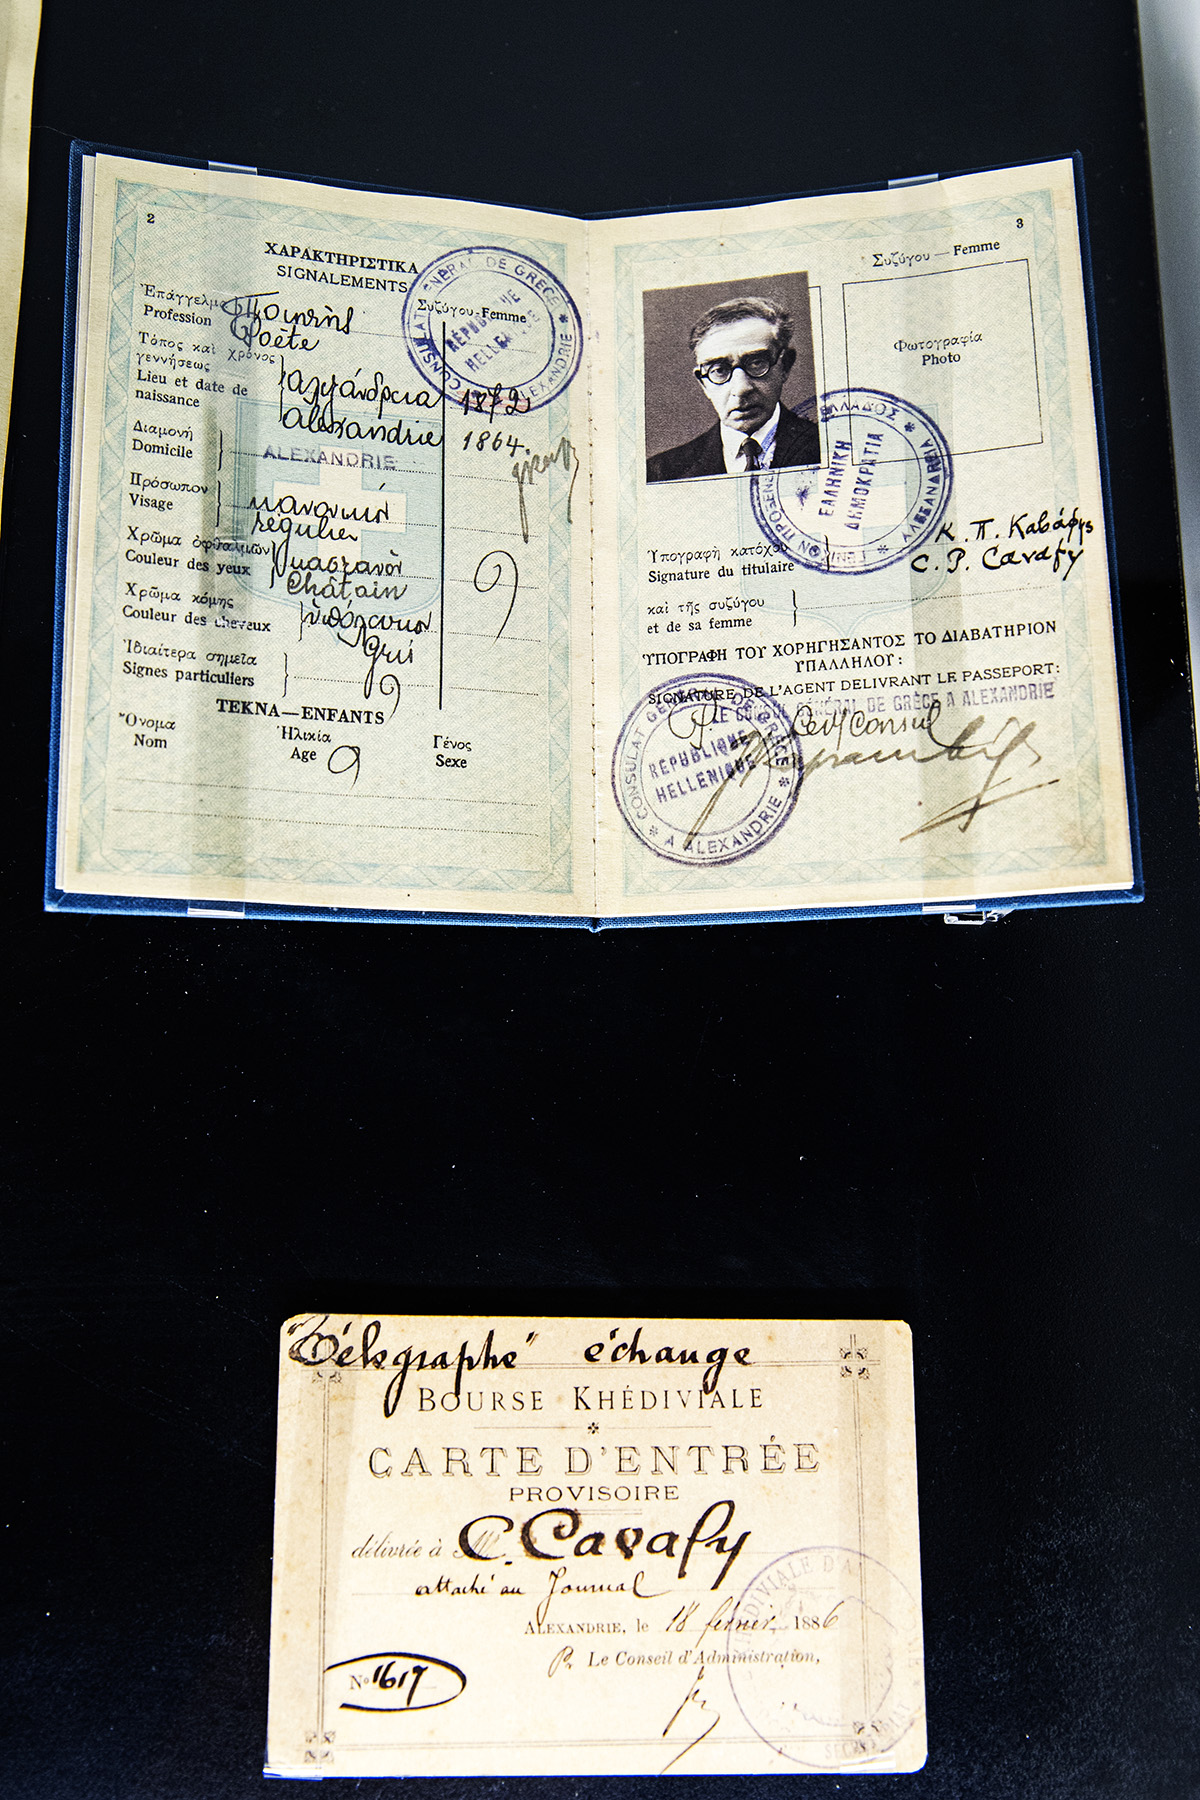 2
ΧΑΡΑΚΤΗΡΙΣΤΙΚΑ
SIGNALEMENTS
Συζύγου-Femme
Ἐπάγγελμα Ποιητής
Profession Poète
Τόπος καὶ χρόνος
γεννήσεως Ἀλεξάνδρεια 1872
Lieu et date de
naissance Alexandrie 1864
Διαμονή
Domicile ALEXANDRIE
Πρόσωπον κανονικόν
Visage régulier
Χρῶμα ὀφθαλμῶν καστανὸν
Couleur des yeux Châtain
Χρῶμα κόμης ὑπόλευκον
Couleur des cheveux Gris
Ἰδιαίτερα σημεῖα
Signes particuliers
ΤΕΚΝΑ—ENFANTS
Ὄνομα Ἡλικία Γένος
Nom Age Sexe
CONSULAT GÉNÉRAL DE GRÈCE * A ALEXANDRIE *
RÉPUBLIQUE
HELLÉNIQUE
3
Συζύγου — Femme
Φωτογραφία
Photo
ΕΛΛΑΔΟΣ * ΑΛΕΞΑΝΔΡΕΙΑ *
ΕΛΛΗΝΙΚΗ
ΔΗΜΟΚΡΑΤΙΑ
Κ. Π. Καβάφης
Ὑπογραφὴ κατόχου
Signature du titulaire C. P. Cavafy
καὶ τῆς συζύγου
et de sa femme
ΥΠΟΓΡΑΦΗ ΤΟΥ ΧΟΡΗΓΗΣΑΝΤΟΣ ΤΟ ΔΙΑΒΑΤΗΡΙΟΝ
ΥΠΑΛΛΗΛΟΥ:
SIGNATURE DE L'AGENT DELIVRANT LE PASSEPORT:
LE CONSUL GÉNÉRAL DE GRÈCE A ALEXANDRIE
Consul
CONSULAT GÉNÉRAL DE GRÈCE * A ALEXANDRIE *
RÉPUBLIQUE
HELLÉNIQUE
"Télégraphe" échange
BOURSE KHÉDIVIALE
CARTE D'ENTRÉE
PROVISOIRE
délivrée à Mr C. Cavafy
attaché au Journal
ALEXANDRIE, le 18 février 1886
P. Le Conseil d'Administration,
No 1617